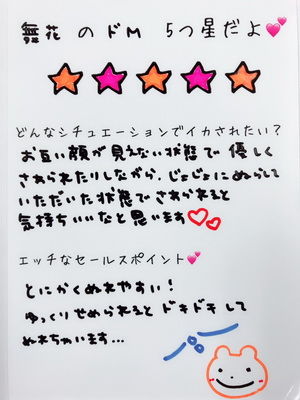 舞花 のドM 5つ星だよ💕
どんなシチュエーションでイカされたい?
お互い顔が見えない状態で優しく
さわられたりしながら、じょじょにぬらして
いただいた状態でさわられると
気持ちいいなと思います♡♡
エッチなセールスポイント💕
とにかくぬれやすい!
ゆっくりせめられると ドキドキして
ぬれちゃいます...